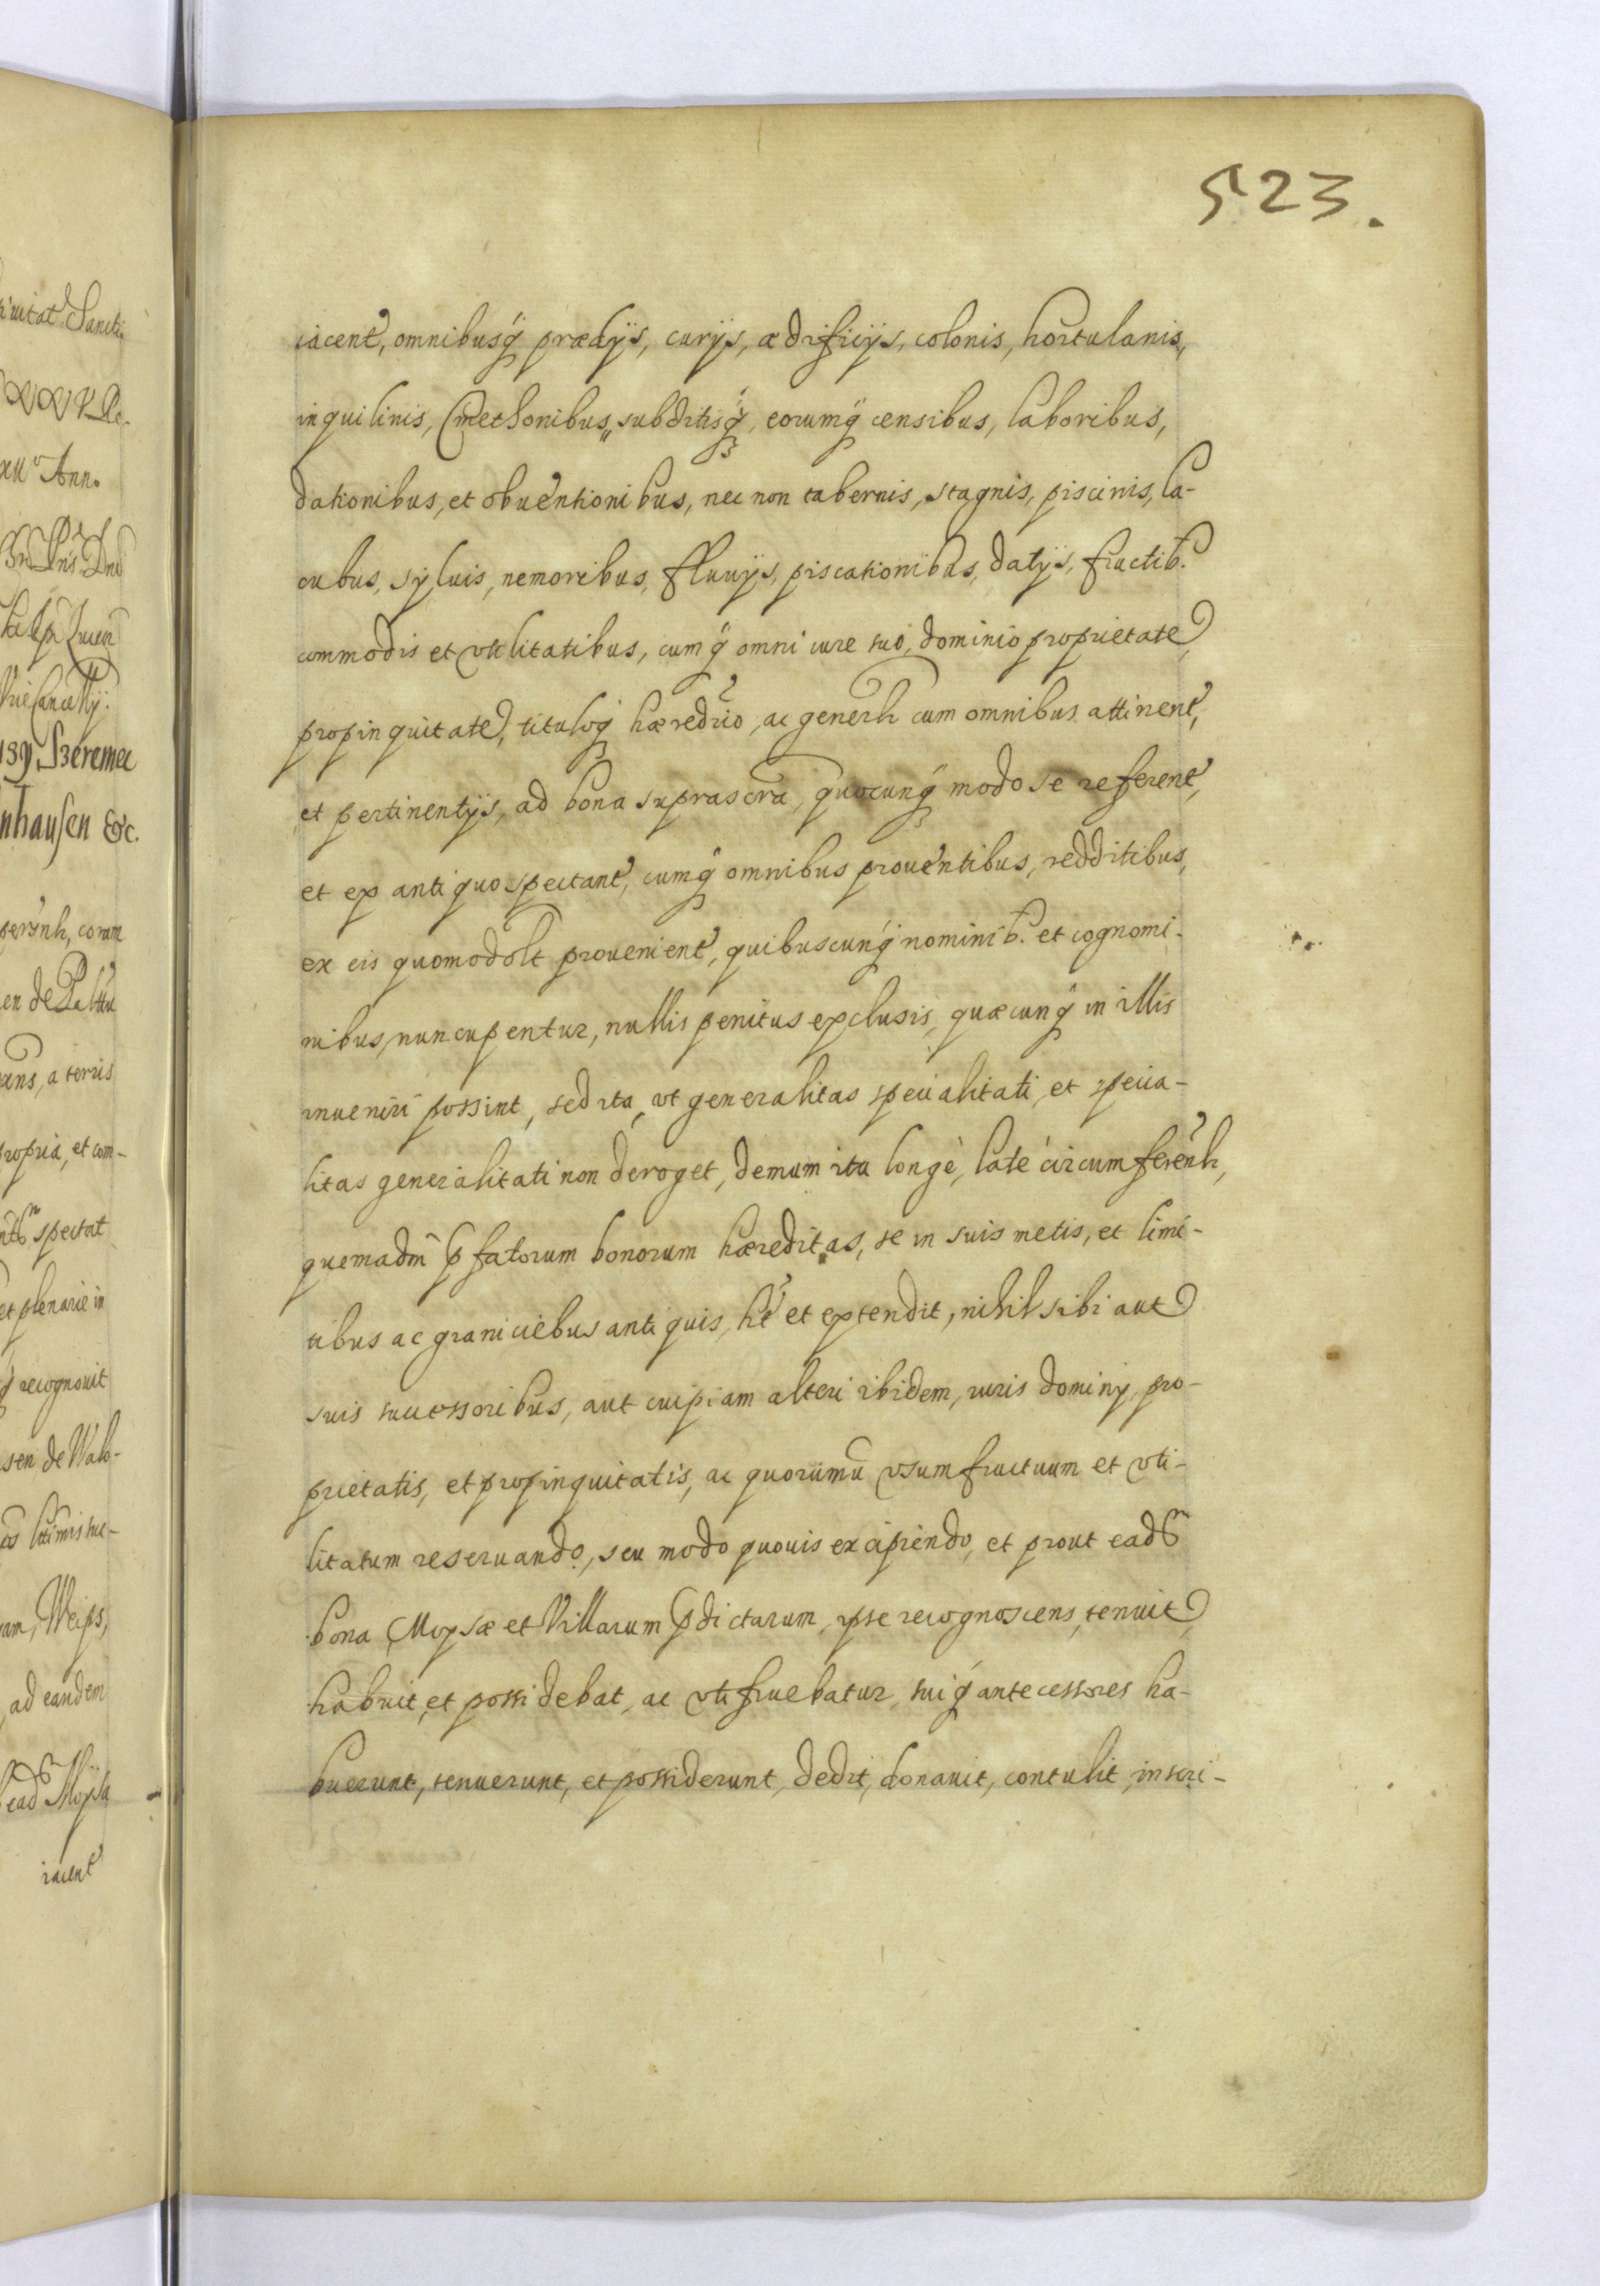 523.
iacent, omnibusq̃ prædÿs, curÿs, ædificÿs, colonis, hortulanis,
inquilinis, Cmethonibus, subditisq̃, eorumq̃ censibus, laboribus,
dationibus, et obuentionibus, nec non tabernis, stagnis, piscinis, la-
cubus, sÿluis, nemoribus, fluuÿs, piscationibus, datÿs, fructib.
commodis et vtilitatibus, cumq̃ omni iure suo, dominio proprietate,
propinquitate, tituloq̃ hæredrio, ac generli cum omnibus attinent,
et pertinentÿs, ad bona suprascra, quocunq̃ modo se referent,
et ex antiquo spectant, cumq̃ omnibus prouentibus, redditibus,
ex eis quomodolt prouenient, quibuscunq̃ nominib. et cognomi-
nibus, nuncupentur, nullis penitus exclusis, quæcunq̃ in illis
inueniri possint, sed ita, vt generalitas specialitati, et specia-
litas generalitati non deroget, demum ita longè, latè circumferenlr,
quemadm̃ p̃fatorum bonorum hæreditas, se in suis metis, et limi-
tibus ac graniciebus antiquis, ht et extendit, nihil sibi aut
suis successoribus, aut cuipiam alteri ibidem, iuris dominÿ, pro-
prietatis, et propinquitatis, ac quorumu̅ vsumfructuum et vti-
litatum reseruando, seu modo quouis excipiendo, et prout eadem
bona Moysæ et Villarum p̃dictarum, ipse recognoscens, tenuit,
habuit, et possidebat, ac vti fruebatur, suiq̃ antecessores ha-
buerunt, tenuerunt, et possiderunt, dedit, donauit, contulit, inscri-